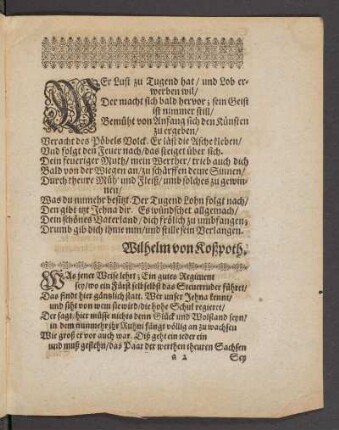 WEr Lust zu Tugend hat / und Lob er-
werben wil /
Der macht sich bald hervor; sein Geist
ist nimmer still /
Bemüht von Anfang sich den Künsten
zu ergeben /
Veracht des Pöbels Volck. Er läst die Asche kleben /
Und folgt den Feuer nach / das steiget über sich.
Dein feuriger Muth / mein Werther / trieb auch dich
Bald von der Wiegen an / zu schärffen deine Sinnen /
Durch theure Müh und Fleiß / und solches zu gewin-
nen /
Was du nunmehr besitzt. Der Tugend Lohn folgt nach /
Den gibt itzt Jehna dir. Es wündschet allgemach /
Dein schönes Vaterland / dich frölich zu umbfangen;
Drumb gib dich ihme nun / und stille sein Verlangen.
Wilhelm von Koßpoth.
WAs jener Weise lehrt; Ein gutes Regiment
sey / wo ein Fürst selbselbst das Steuerruder führet /
Das findt hier gäntzlich statt. Wer unser Jehna kennt /
und siht von wem sie wird / die hohe Schul regieret /
Der sagt / hier müsse nichts denn Glück und Wolstand seyn /
in dem nunmehr ihr Ruhm fängt völlig an zu wachsen
Wie groß er vor auch war. Diß geht ein ieder ein
und muß gestehn / das Paar der werthen theuren Sachsen
a 2 Sey